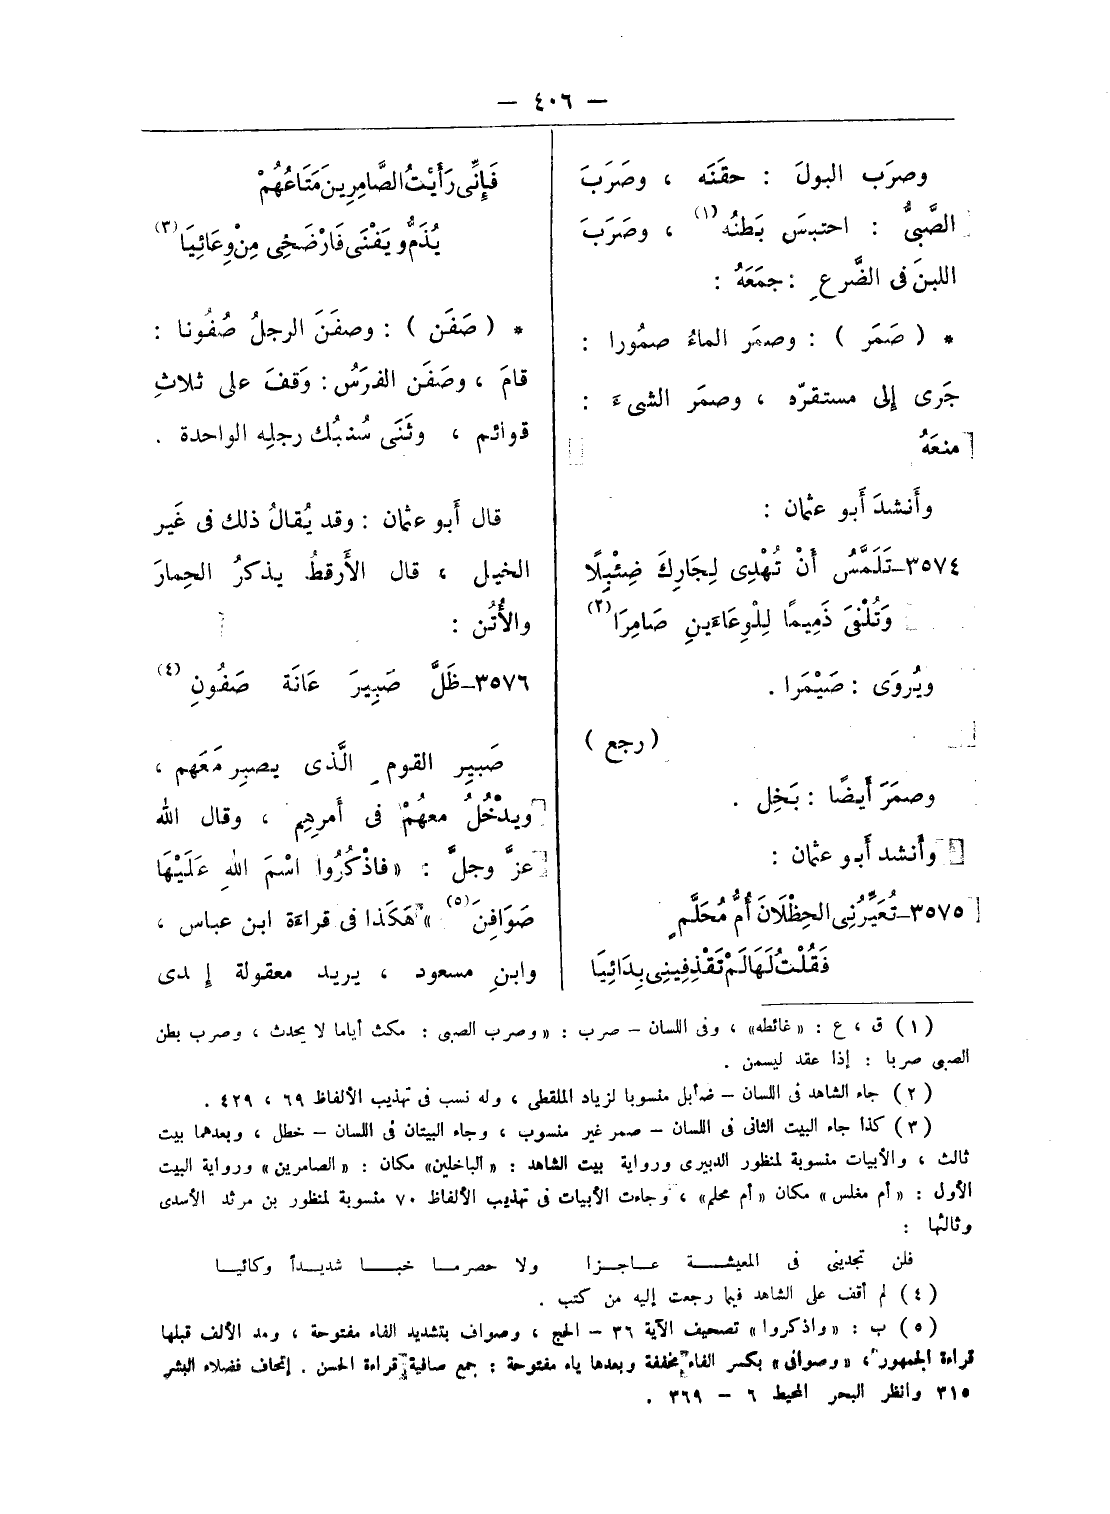 — ٤٠٦ —
وصرَب البولَ : حقَنَه ، وصَرَبَ
الصَّبىُّ : احتبسَ بَطنُه (١) ، وصَرَبَ
اللبنَ فى الضَّرعِ : جمَعَهُ :
* ( صَمَر ) : وصمَر الماءُ صمُورا :
جَرى إلى مستقرّه ، وصمَر الشىءَ :
منعَهُ
وأَنشدَ أَبو عثمان :
٣٥٧٤ــ تَلَمَّسُ أَنْ تُهْدِى لِجَارِكَ ضِئْبِلًا
وَتُلْفَى ذَمِيمًا لِلْوِعَاءَينِ صَامِرَا (٢)
ويُروَى : صَيْمَرا .
( رجع )
وصمَرَ أَيضًا : بَخِل .
وأَنشد أَبو عثمان :
٣٥٧٥ــ تُعَيِّرُنِى الحِظْلَانَ أُمُّ مُحَلَّمٍ
فَقُلْتُ لَهَا لَمْ تَقْذِفِينِى بِدَائِيَا
فَإِنِّى رَأَيْتُ الصَّامِرِينَ مَتَاعُهُمْ
يُذَمُّ ويَفْنَى فَارْضَخِى مِنْ وِعَائِيَا (٣)
* ( صَفَن ) : وصفَنَ الرجلُ صُفُونا :
قامَ ، وصَفَن الفرَسُ : وَقفَ على ثلاثِ
قوائم ، وثَنَى سُنبُك رجلِه الواحدة .
قال أَبو عثمان : وقد يُقالُ ذلك فى غَير
الخيل ، قال الأَرقطُ يذكرُ الحِمارَ
والأُتُن :
٣٥٧٦ــ ظَلَّ صَبِيرَ عَانَة صَفُونِ (٤)
صَبيِر القومِ الَّذى يصبِر مَعَهم ،
ويدْخُلُ معهُمْ فى أَمرِهِم ، وقال الله
عزَّ وجلَّ : « فاذْكُرُوا اسْمَ اللهِ عَلَيْهَا
صَوَافِنَ (٥) » هَكَذا فى قراءَة ابن عباس ،
وابنِ مسعود ، يريد معقولة إِدى
(١) ق ، ع : « غائطه » ، وفى اللسان – صرب : « وصرب الصبى : مكث أياما لا يحدث ، وصرب بطن
الصبى صربا : إذا عقد ليسمن .
(٢) جاء الشاهد فى اللسان – ضأبل منسوبا لزياد الملقطى ، وله نسب فى تهذيب الألفاظ ٦٩ ، ٤٢٩ .
(٣) كذا جاء البيت الثانى فى اللسان – صمر غير منسوب ، وجاء البيتان فى اللسان – خطل ، وبعدهما بيت
ثالث ، والأبيات منسوبة لمنظور الدبيرى ورواية بيت الشاهد : « الباخلين » مكان : « الصامرين » ورواية البيت
الأول : « أم مغلس » مكان « أم محلم » ، وجاءت الأبيات فى تهذيب الألفاظ ٧٠ منسوبة لمنظور بن مرثد الأسدى
وثالثها :
فلن تجدينى فى المعيشــة عــاجــزا ولا حصرمــا خبــا شديــدا وكائيــا
(٤) لم أقف على الشاهد فيما رجعت إليه من كتب .
(٥) ب : « واذكروا » تصحيف الآية ٣٦ – الحج ، وصواف بتشديد الفاء مفتوحة ، ومد الألف قبلها
قراءة الجمهور ، « وصوافى » بكسر الفاء مخففة وبعدها ياء مفتوحة : جمع صافية قراءة الحسن . إتحاف فضلاء البشر
٣١٥ وانظر البحر المحيط ٦ – ٣٦٩ .